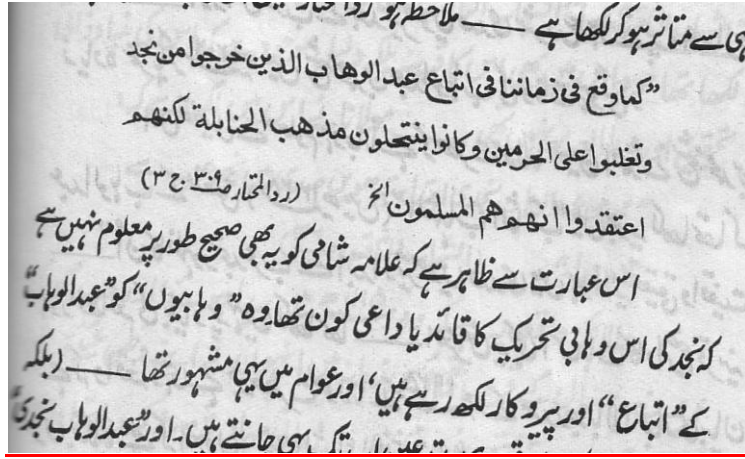 ہی سے متاثر ہوکر لکھا ہے ـــــ ملاحظہ ہو ردالمحتار
”کما وقع فی زماننا فی اتباع عبد الوهاب الذین خرجوا من نجد
وتغلبوا علی الحرمین وکانوا ینتحلون مذهب الحنابلة لکنهم
اعتقدوا انهم هم المسلمون الخ (ردالمحتار صـ۳۰۹ ج ۳)
اس عبارت سے ظاہر ہے کہ علامہ شامی کو یہ بھی صحیح طور پر معلوم نہیں ہے
کہ نجد کی اس وہابی تحریک کا قائد یا داعی کون تھا، وہ ”وہابیوں“ کو ”عبدالوہاب
کے ”اتباع“ اور پیروکار لکھ رہے ہیں، اور عوام میں یہی مشہور تھا ـــــ (بلکہ
تک یہی جانتے ہیں۔ اور ”عبدالوہاب نجدی“